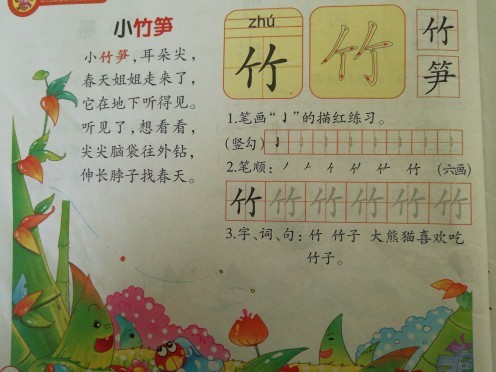 小竹笋
小竹笋,耳朵尖,
春天姐姐走来了,
它在地下听得见。
听见了,想看看,
尖尖脑袋往外钻,
伸长脖子找春天。
zhú
竹
竹
竹
笋
1.笔画“亅”的描红练习。
(竖勾) 亅亅亅亅亅亅亅亅亅亅
2.笔顺: 丿 𠂉 ケ 竹 (六画)
竹竹竹竹竹竹
3.字、词、句: 竹 竹子 大熊猫喜欢吃
竹子。